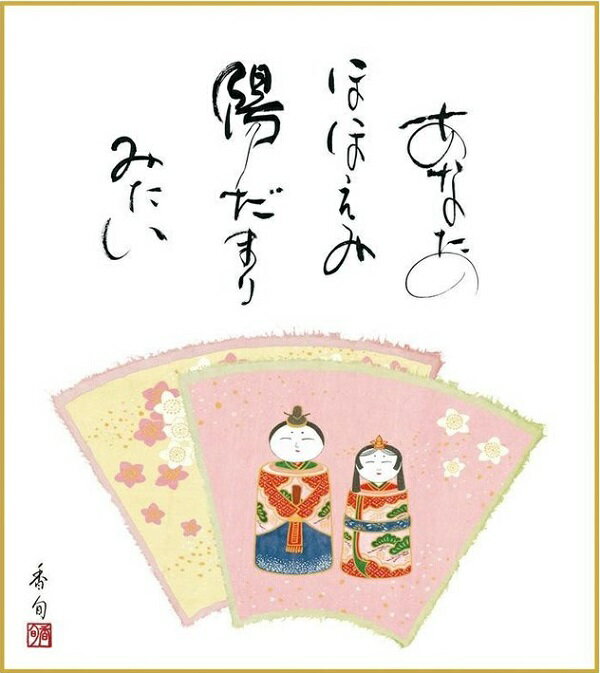 あなたの
ほほえみ
陽だまり
みたい
香旬